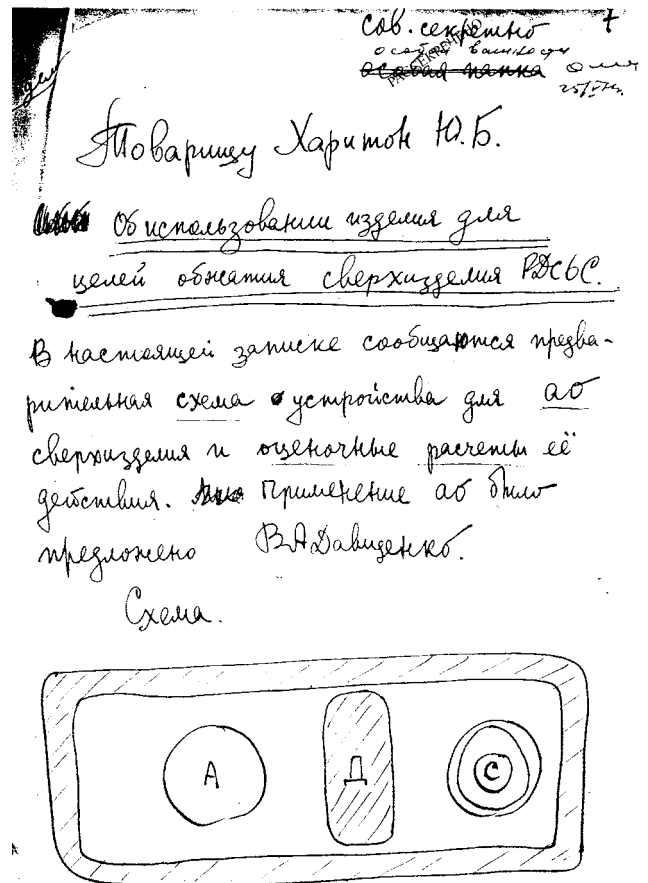 сов. секретно 7
особой важности
особая папка
РАССЕКРЕЧЕНО
Товарищу Харитон Ю.Б.
Об использовании изделия для
целей обжатия сверхизделия РДС6С.
В настоящей записке сообщаются предва-
рительная схема устройства для АО
сверхизделия и оценочные расчеты её
действия. Применение АО было
предложено В А Давиденко.
Схема.
А Д С